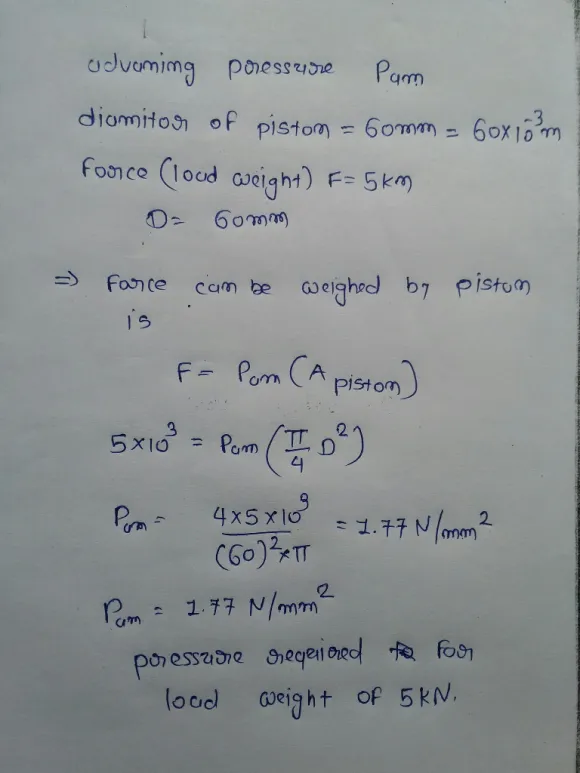 advaming pressure Pam
diamitor of piston = 60mm = 60×10⁻³m
Force (load weight) F= 5km
D= 60mm
⇒ Farce can be weighed by piston
is
F = Pam (A piston)
5×10³ = Pam (π/4 D²)
Pam = 4×5×10⁹ / (60)²×π = 1.77 N/mm²
Pam = 1.77 N/mm²
pressure required for
load weight of 5KN.